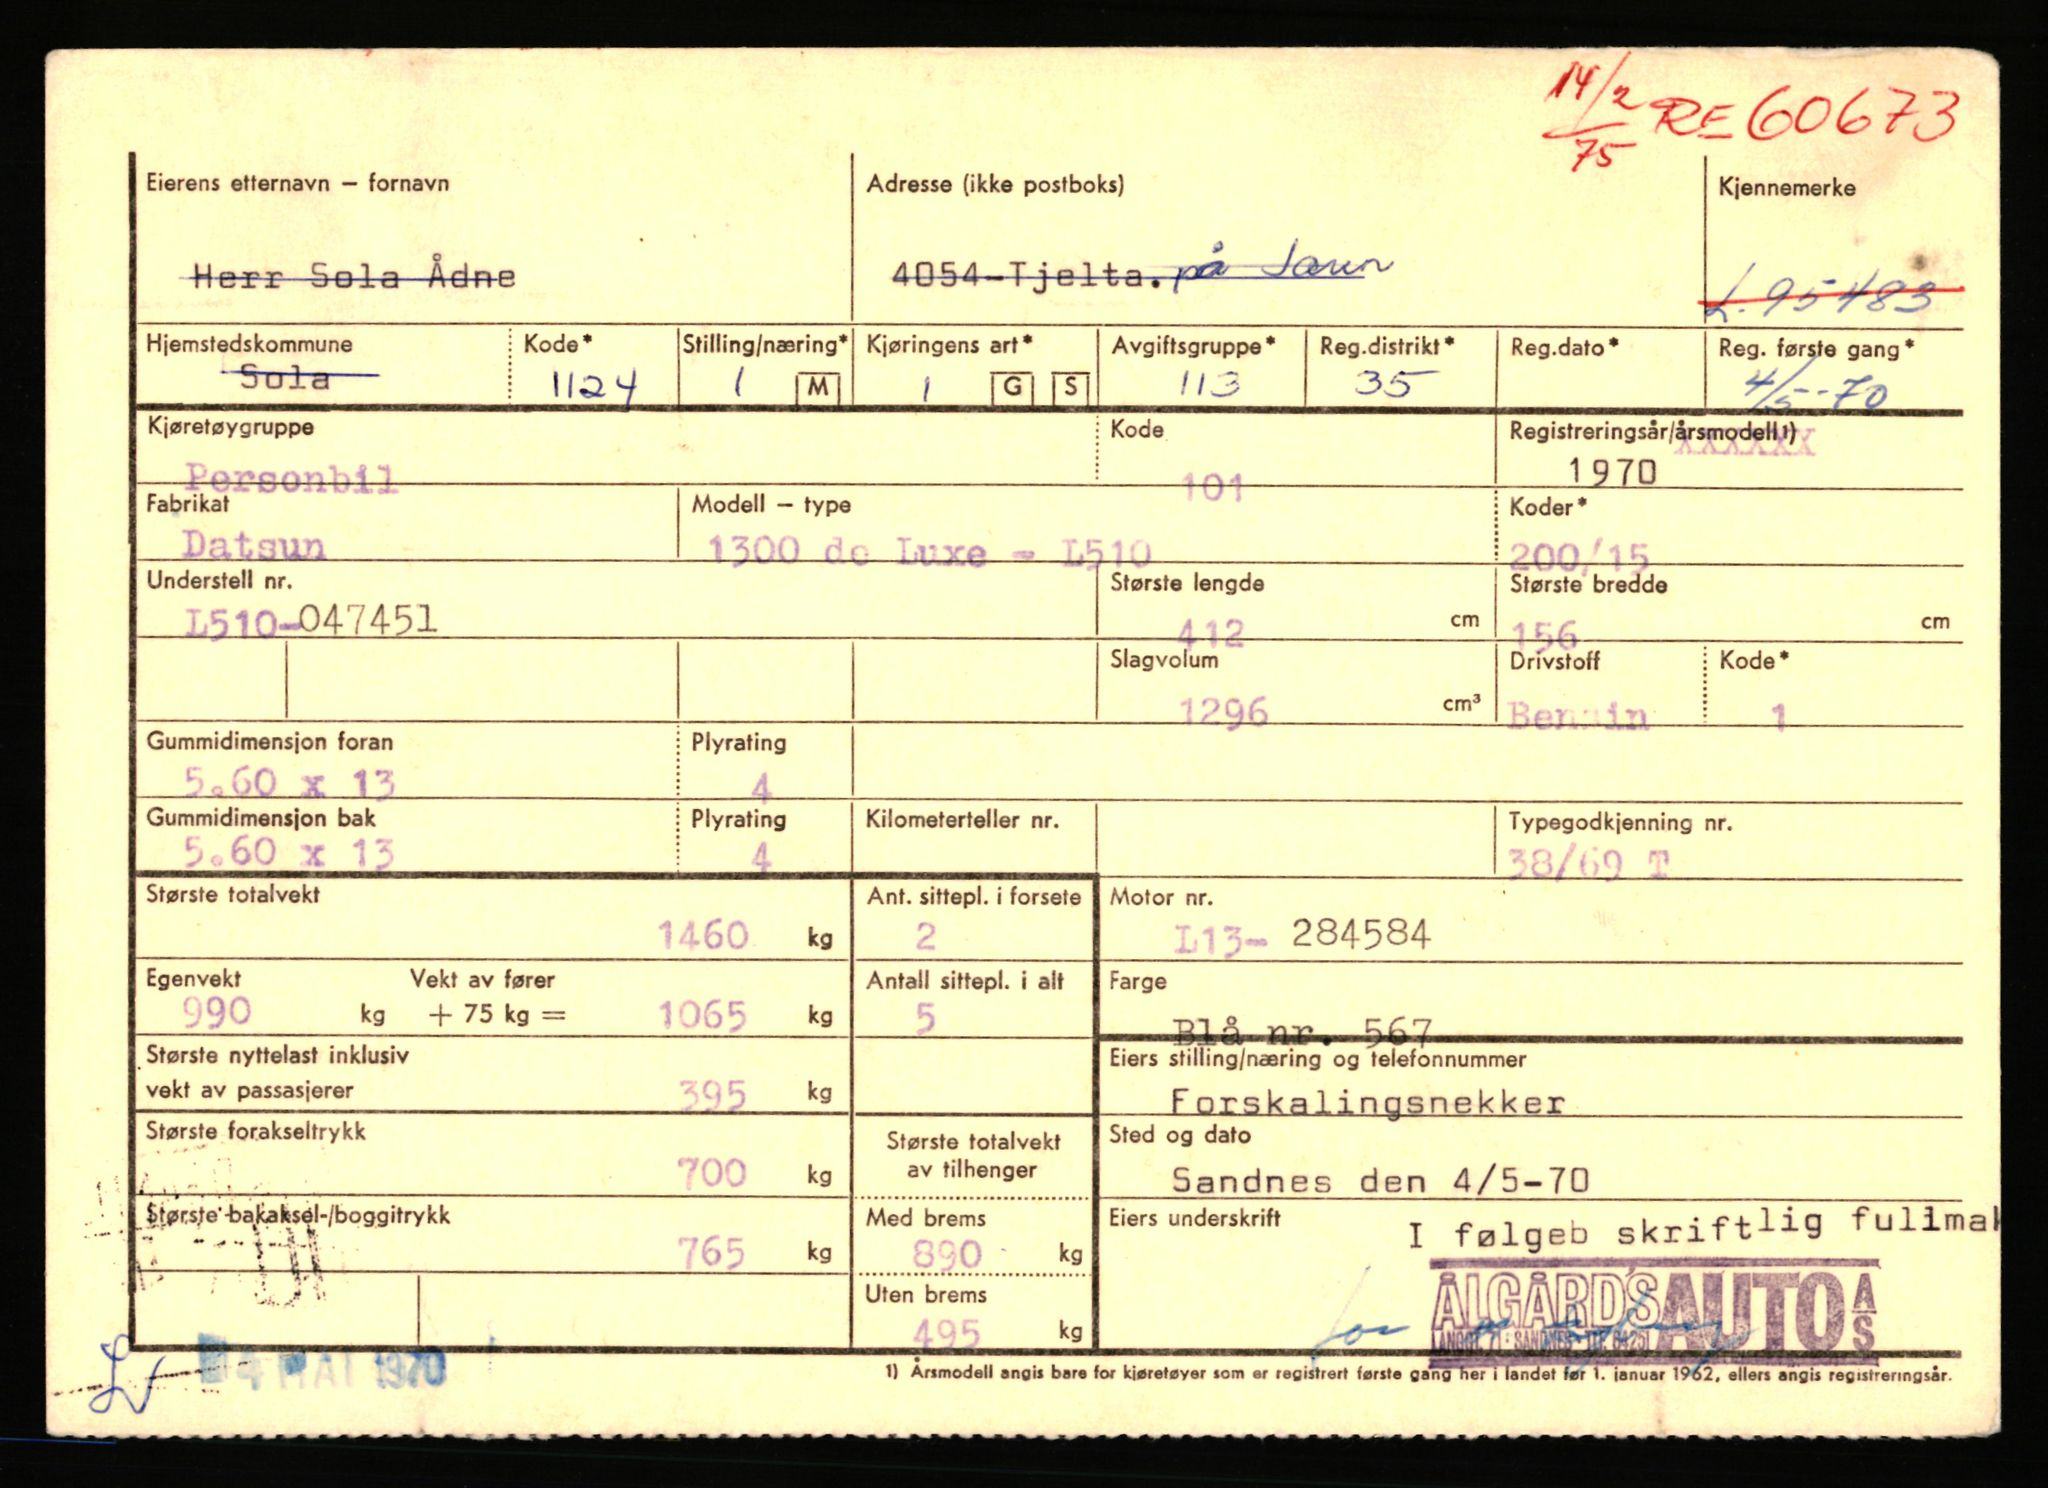 14/2 75 RE 60673
Eierens etternavn – fornavn Adresse (ikke postboks) Kjennemerke
Herr Sola Ådne 4054-Tjelta. på Jæren L.95483
Hjemstedskommune Kode* Stilling/næring* Kjøringens art* Avgiftsgruppe* Reg.distrikt* Reg.dato* Reg. første gang*
Sola 1124 1 M 1 G S 113 35 4/5-70
Kjøretøygruppe Kode Registreringsår/årsmodell1)
XXXXXX
Personbil 101 1970
Fabrikat Modell – type Koder*
Datsun 1300 de Luxe - L510 200/15
Understell nr. Største lengde Største bredde
L510-047451 412 cm 156 cm
Slagvolum Drivstoff Kode*
1296 cm³ Bensin 1
Gummidimensjon foran Plyrating
5.60 x 13 4
Gummidimensjon bak Plyrating Kilometerteller nr. Typegodkjenning nr.
5.60 x 13 4 38/69 T
Største totalvekt Ant. sittepl. i forsete Motor nr.
1460 kg 2 L13- 284584
Egenvekt Vekt av fører Antall sittepl. i alt Farge
990 kg + 75 kg = 1065 kg 5 Blå nr. 567
Største nyttelast inklusiv Eiers stilling/næring og telefonnummer
vekt av passasjerer 395 kg Forskalingsnekker
Største forakseltrykk Største totalvekt Sted og dato
700 kg av tilhenger Sandnes den 4/5-70
Største bakaksel-/boggitrykk Med brems Eiers underskrift I følgeb skriftlig fullmak
765 kg 890 kg
Uten brems ÅLGÅRD'S AUTO A/S
495 kg
4 MAI 1970
1) Årsmodell angis bare for kjøretøyer som er registrert første gang her i landet før 1. januar 1962, ellers angis registreringsår.